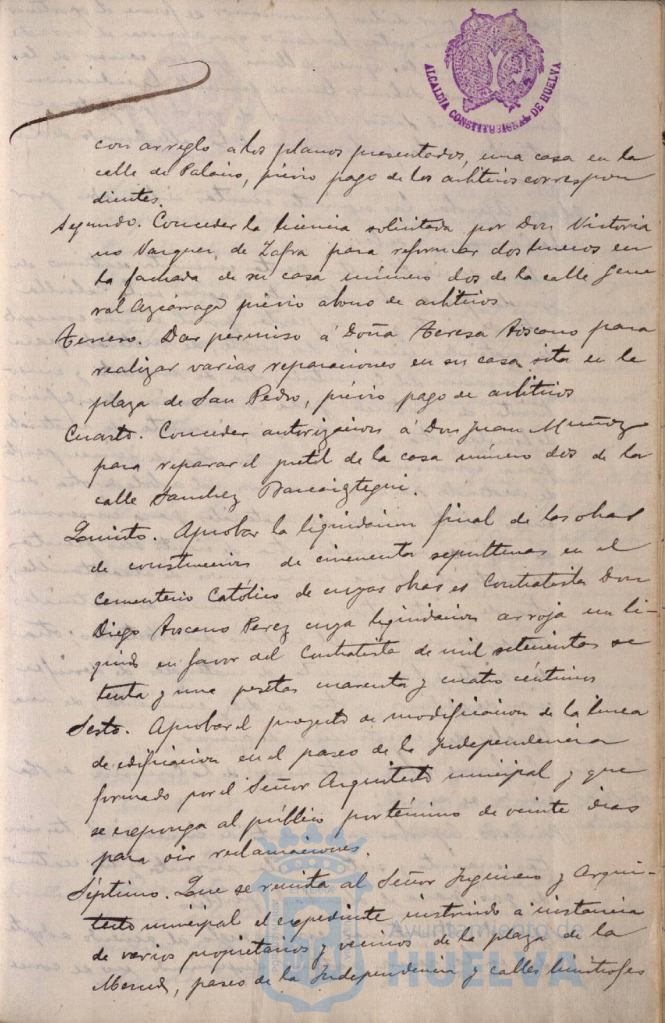 ALCALDIA CONSTITUCIONAL DE HUELVA
con arreglo a los planos presentados, una casa en la
calle de Palacio, prévio pago de los arbitrios correspon
dientes.
Segundo. Conceder la licencia solicitada por Don Victoria
no Vazquez de Zafra para reformar dos huecos en
la fachada de su casa número dos de la calle Gene
ral Azcárraga prévio abono de arbitrios
Tercero. Dar permiso á Doña Teresa Toscano para
realizar varias reparaciones en su casa sita en la
plaza de San Pedro, prévio pago de arbitrios
Cuarto. Conceder autorizacion á Don Juan Muñoz
para reparar el pretil de la casa número dos de la
calle Sanchez Barcaiztegui.
Quinto. Aprobar la liquidacion final de las obras
de construccion de cincuenta sepulturas en el
Cementerio Católico de cuyas obras es Contratista Don
Diego Toscano Perez cuya liquidacion arroja un li-
quido en favor del Contratista de mil setecientas se
tenta y una pesetas cuarenta y cuatro céntimos
Sesto. Aprobar el proyecto de modificacion de la linea
de edificacion en el paseo de la Independencia
formado por el Señor Arquitecto municipal y que
se exponga al público por término de veinte dias
para oir reclamaciones.
Séptimo. Que se remita al Señor Ingeniero y Arqui-
tecto municipal el expediente instruido a instancia
de varios propietarios y vecinos de la plaza de la
Merced, paseo de la Independencia y calles limitrofes
Ayuntamiento de
HUELVA